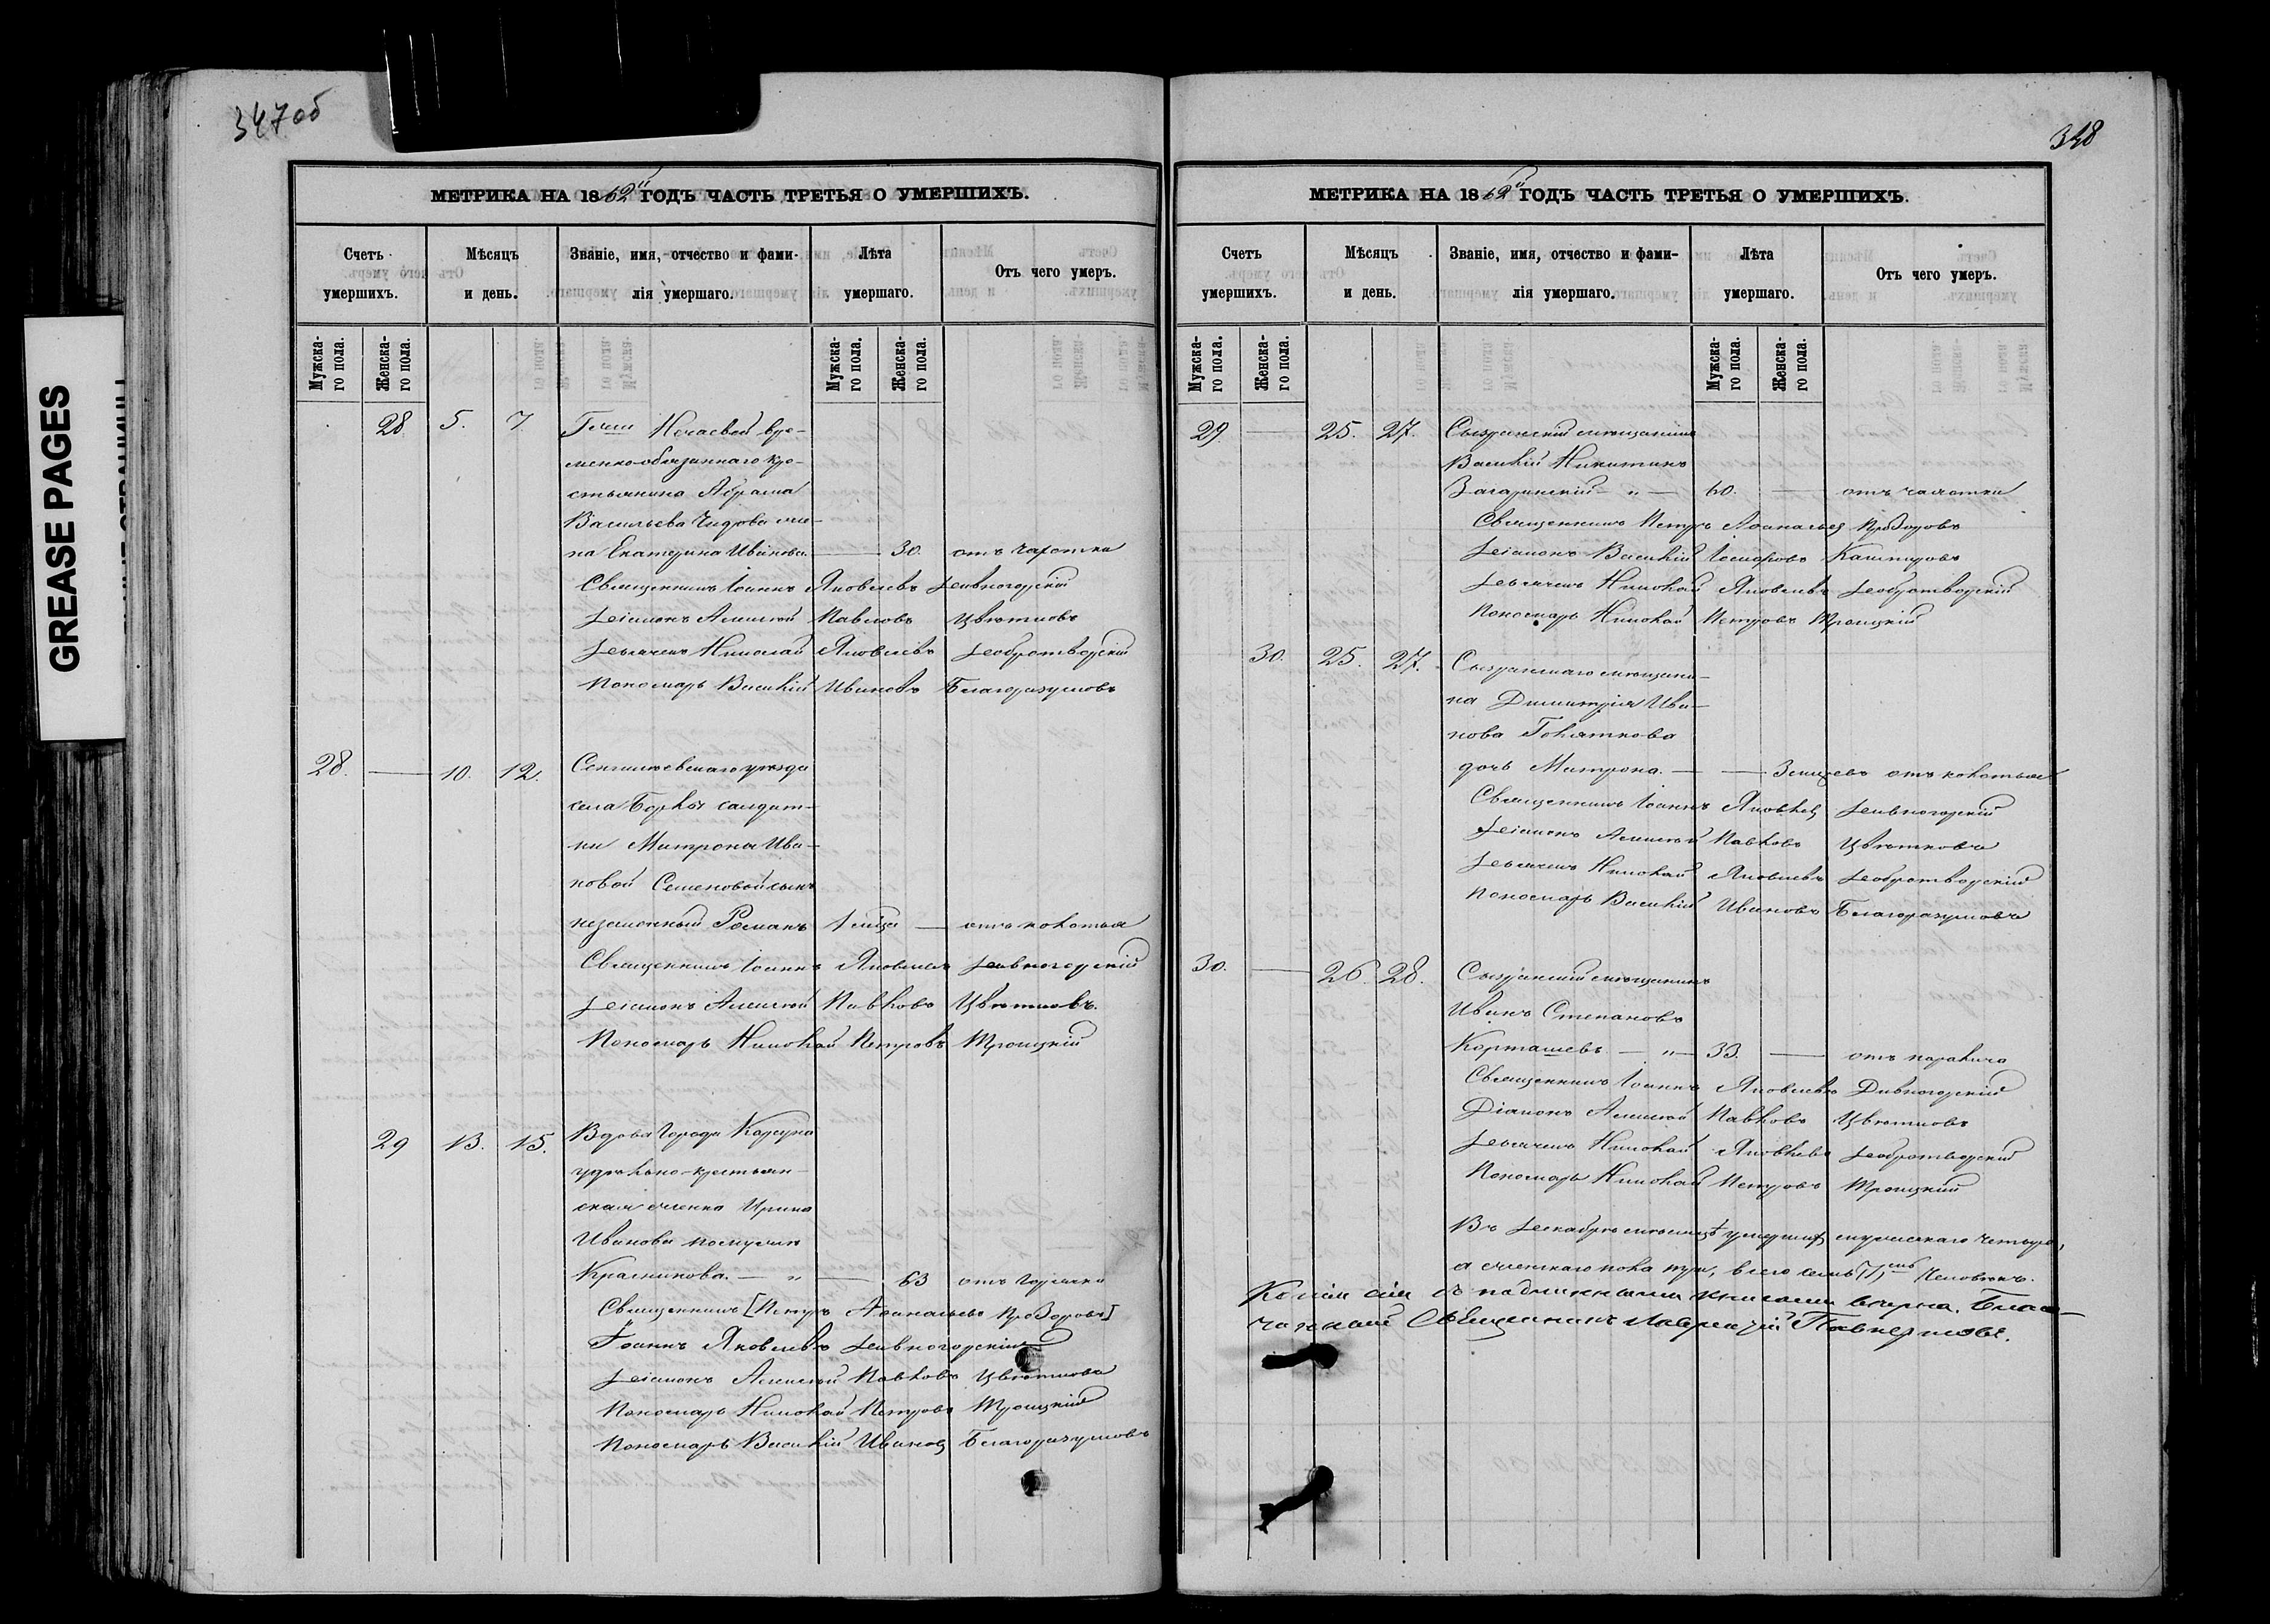 347об
МЕТРИКА НА 1862й ГОДЪ ЧАСТЬ ТРЕТЬЯ О УМЕРШИХЪ.
Счетъ умершихъ.
Мѣсяцъ и день.
Званіе, имя, отчество и фами-
лія умершаго.
Лѣта умершаго.
Отъ чего умеръ.
Мужска-
го пола.
Женска-
го пола.
Мужска-
го пола.
Женска-
го пола.
28 5. 7 Г-жи Нечаевой вре-
менно-обязаннаго кре-
стьянина Абрама
Васильева Чидрова же-
на Екатерина Иванова. — 30. отъ чахотки
Священникъ Іоаннъ Яковлевъ Дивногорскій
Діаконъ Алексѣй Павловъ Цвѣтковъ
Дьячекъ Николай Яковлевъ Добротворскій
Пономарь Василій Ивановъ Благоразумовъ
28. — 10. 12. Сенгилеевскаго уѣзда
села Борлы салдат-
ки Матроны Ива-
новой Семеновой сынъ
незаконный Романъ 1 мѣся — отъ колотья
Священникъ Іоаннъ Яковлевъ Дивногорскій
Діаконъ Алексѣй Павловъ Цвѣтковъ.
Пономарь Николай Петровъ Троицкій
29 13. 15. Вдова Города Корсуна
удѣльно-крестьян-
ская женка Ирина
Иванова
Красникова. — „ — 63 отъ горячки
Священникъ [Петръ Афанасьевъ Прозоровъ]
Іоаннъ Яковлевъ Дивногорскій
Діаконъ Алексѣй Павловъ Цвѣтковъ
Пономарь Николай Петровъ Троицкій
Пономарь Василій Ивановъ Благоразумовъ
348
МЕТРИКА НА 1862й ГОДЪ ЧАСТЬ ТРЕТЬЯ О УМЕРШИХЪ.
Счетъ умершихъ.
Мѣсяцъ и день.
Званіе, имя, отчество и фами-
лія умершаго.
Лѣта умершаго.
Отъ чего умеръ.
Мужска-
го пола.
Женска-
го пола.
Мужска-
го пола.
Женска-
го пола.
29. — 25. 27. Сызранскій мѣщанинъ
Василій Никитинъ
Загаринскій — „ — 60. — отъ чахотки
Священникъ Петръ Афанасьевъ Прозоровъ
Діаконъ Василій Кашкуровъ
Дьячекъ Николай Яковлевъ Добротворскій
Пономарь Николай Петровъ Троицкій
30. 25. 27. Сызранскаго мѣщани-
на Димитрія Ива-
нова Голяткова
дочь Матрона. — — 3 мѣсяцевъ отъ колотья
Священникъ Іоаннъ Яковлевъ Дивногорскій
Діаконъ Алексѣй Павловъ Цвѣтковъ
Дьячекъ Николай Яковлевъ Добротворскій
Пономарь Василій Ивановъ Благоразумовъ
30. — 26. 28. Сызранскій мѣщанинъ
Иванъ Степановъ
Карташевъ — „ — 33. — отъ паралича
Священникъ Іоаннъ Яковлевъ Дивногорскій
Діаконъ Алексѣй Павловъ Цвѣтковъ
Дьячекъ Николай Яковлевъ Добротворскій
Пономарь Николай Петровъ Троицкій
Въ Декабрѣ мѣсяцѣ умершихъ мужескаго четыре,
а женскаго пола три, всего семь (7) семь Человѣкъ.
Копія сія съ подлинными книгами вѣрна. Благо-
чинный Священникъ Лаврентій
GREASE PAGES